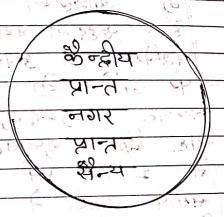 कैन्द्रीय
प्रान्त
नगर
प्रान्त
सैन्य